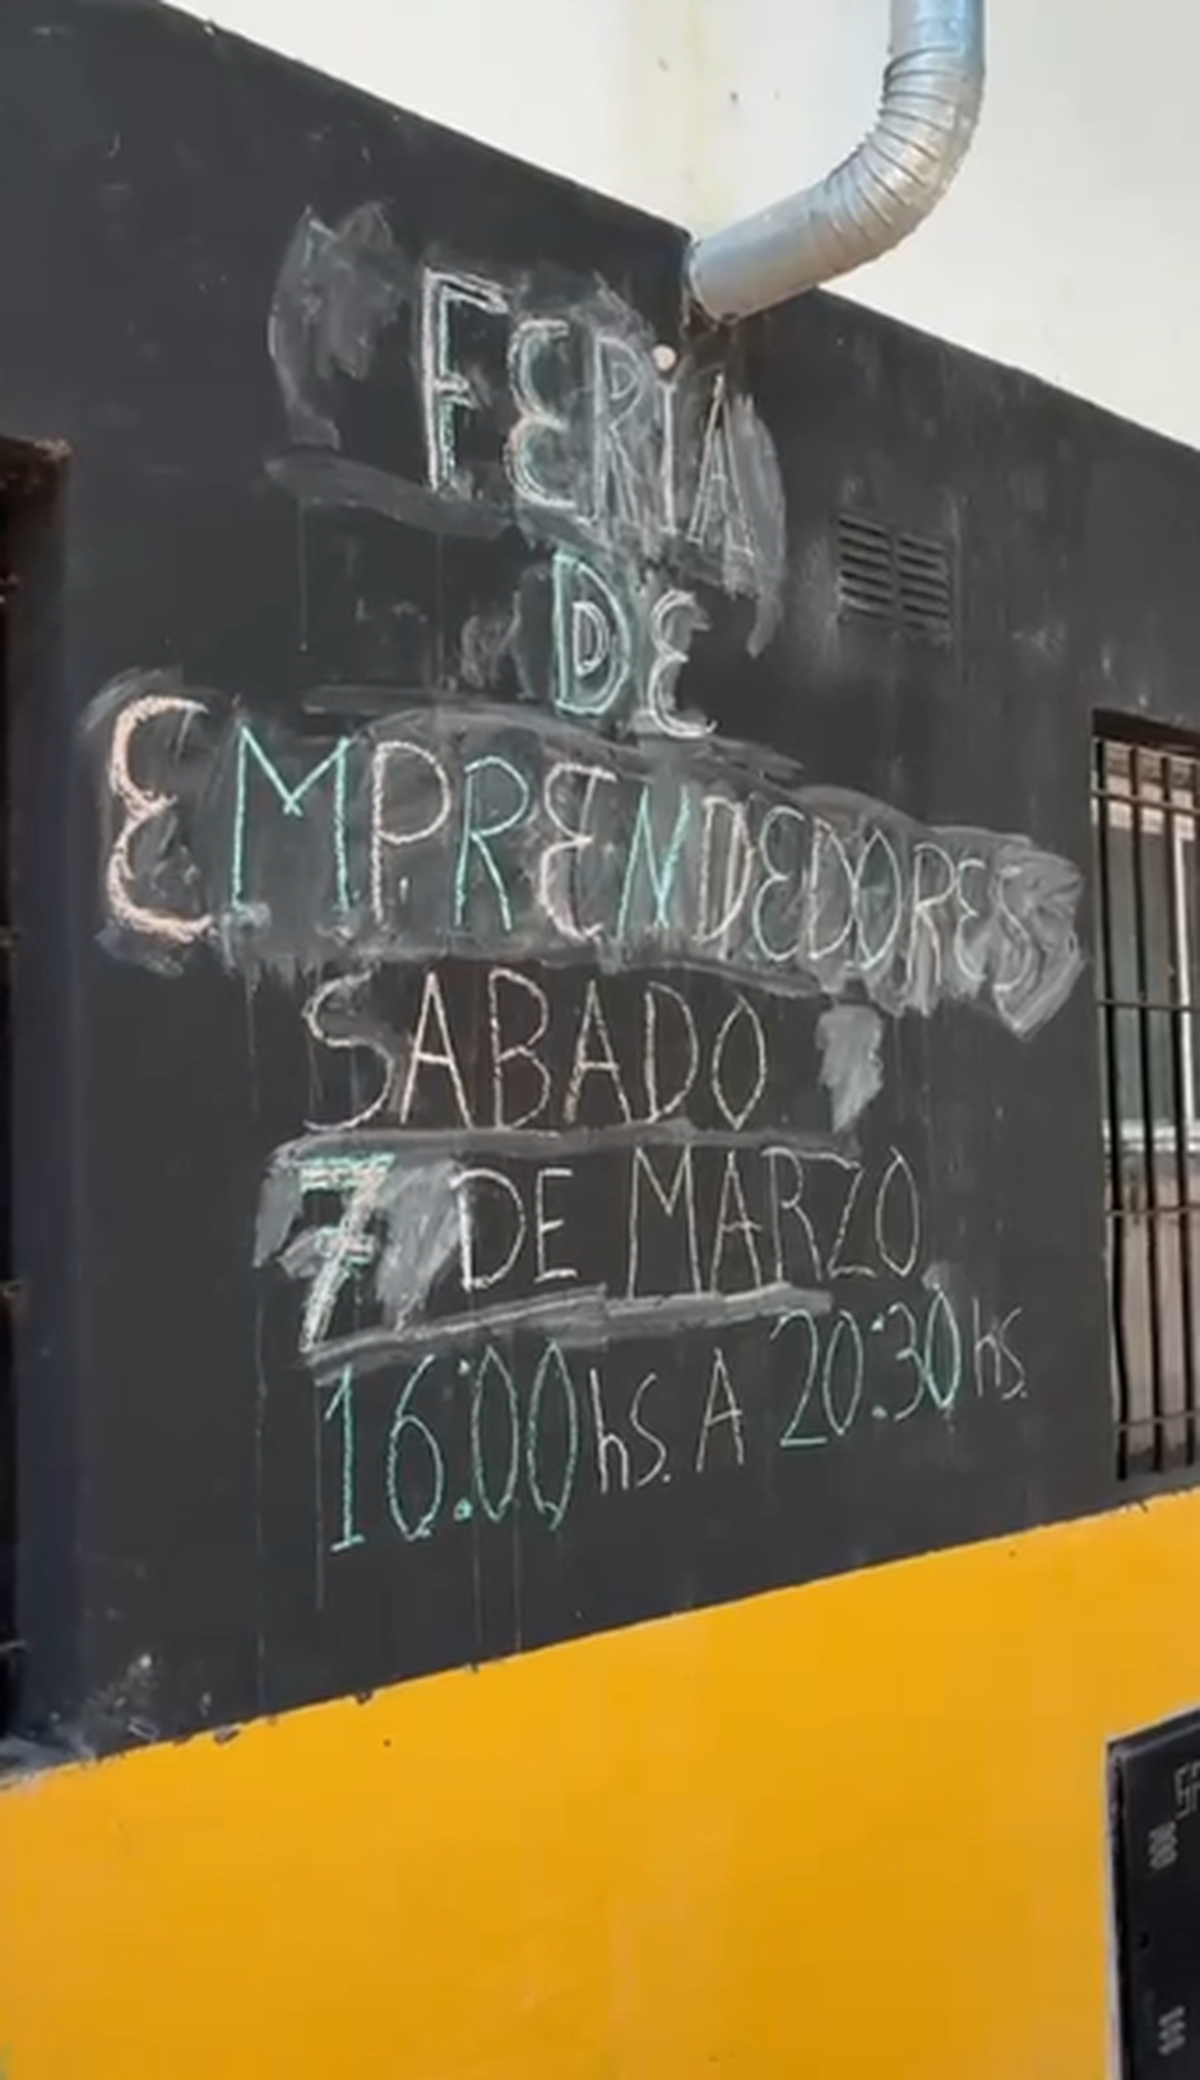 FERiA
DE
EMPRENDEDORES
SABADO
7 DE MARZO
16:00 hs. A 20:30 hs.